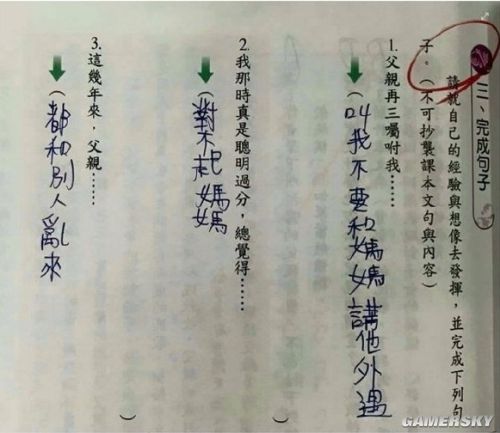 三、完成句子
請就自己的經驗與想像去發揮，並完成下列句
子。（不可抄襲課本文句與內容）
1.父親再三囑咐我……
（叫我不要和媽媽講他外遇）
2.我那時真是聰明過分，總覺得……
（對不起媽媽）
3.這幾年來，父親……
（都和別人亂來）
GAMERSKY